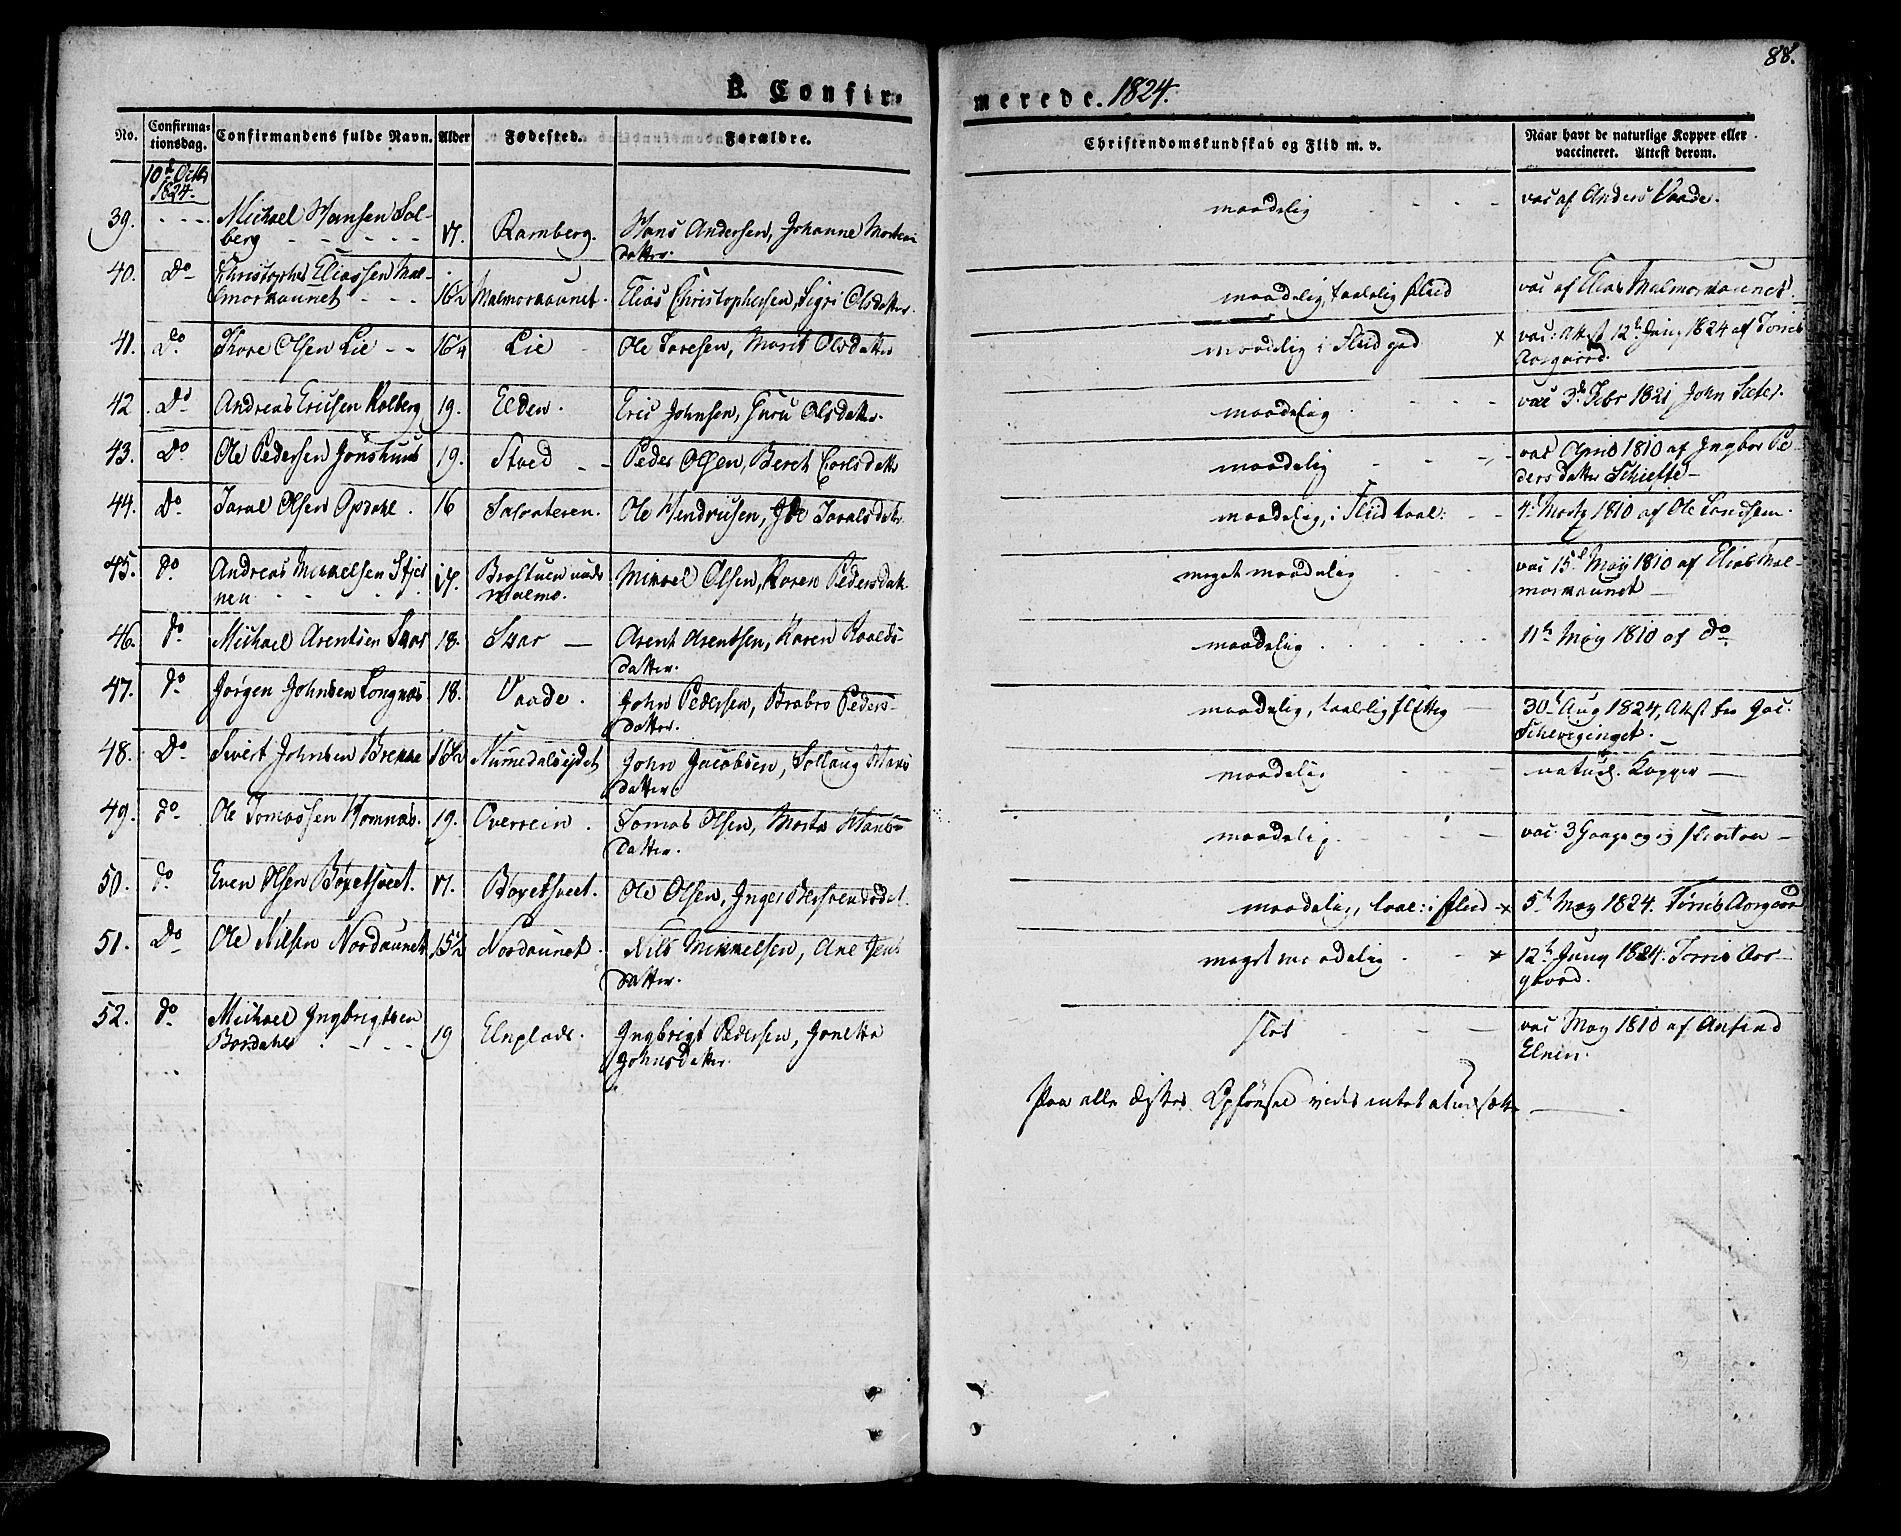 88.
B. Confirmerede. 1824.
No. Confirmationsdag. Confirmandens fulde Navn. Alder Fødested. Forældre. Christendomskundskab og Flid m. v. Naar havt de naturlige Kopper eller vaccineret. Attest derom.
10d Octbr 1824.
39. Michael Hansen Solberg 17. Ramberg. Hans Andersen, Johanne datter. maadelig vac af Anders Vaade.
40. Do Christopher Eliassen Malmoxaunet 16½ Malmoxaunet. Elias Christophersen, Sigri Olsdatter. maadelig, taalelig Fliid vac af Elias Malmoxaunet
41. Do Thore Olsen Lie 16¼ Lie Ole Toresen, Marit Olsdatter maadelig i Fliid god x vac: Attest 12h Juny 1824 af Torris Aargaard.
42 Do Andreas Ericsen Kolberg 19. Elden. Eric Johnsen, Guru Olsdatter. maadelig vac 3d Febr 1821 John Sæter.
43. Do Ole Pedersen 19. Stoed Peder Olsen, Beret maadelig vac 1810 af Ingbor Pedersdatter Schiefte
44. Do Taral Olsen Opdahl. 16 Salaateren. Ole Hendricsen, Taralsdatr maadelig, i Fliid taal: 4. Marty 1810 af Ole
45. do Andreas Mikkelsen 17. Brostuen under Malmo. Mikael Olsen, Karen Pedersdatr. meget maadelig vac 15d May 1810 af Elias Malmoxaunet
46. do Michael Arentsen 18. Arent Arentsen, Karen datter. maadelig. 11h May 1810 af do
47. do Jørgen Johnsen Longnæs. 18. Vaade. John Pedersen, Brabro Pedersdatter. maadelig, taalelig flittig 30d Aug 1824, Attst fra Jac.
48. Do Sivert Johnsen Brekke 16½ Nummedalseidet John Jacobsen, Sollaug Hansdatter maadelig naturl. Kopper
49. do Ole Tomassen Homnæs. 19. Overrein. Tomas Olsen, Marta Hansdatter. maadelig. vac: 3 Gange
50. do Even Olsen 17. Ole Olsen, Inger maadelig, taal: i Fliid x 5h May 1824. Torris Aargaard
51. Do Ole Nilsen Nordaunet 15½ Nordaunet. Nils Mikkelsen, Ane Jensdatter. meget maadelig x 12h Juny 1824. Torris Aargaard.
52. do Michael Ingbrigtsen 19 Elnplads. Ingbrigt Pedersen, Jonetta Johnsdatter. slet vac May 1810 af Elnen.
Paa alle Opførsel vides intet at udsætte